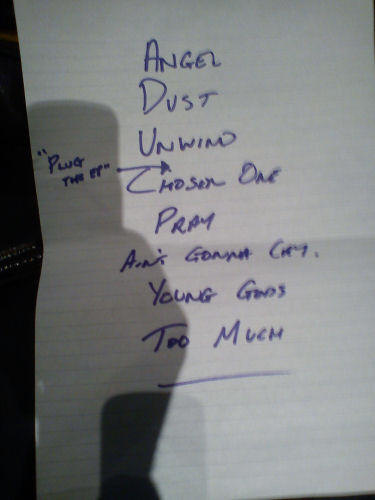 ANGEL
DUST
UNWIND
"PLUG
THE EP"
CHOSEN ONE
PRAY
AIN'T GONNA CRY.
YOUNG GODS
TOO MUCH